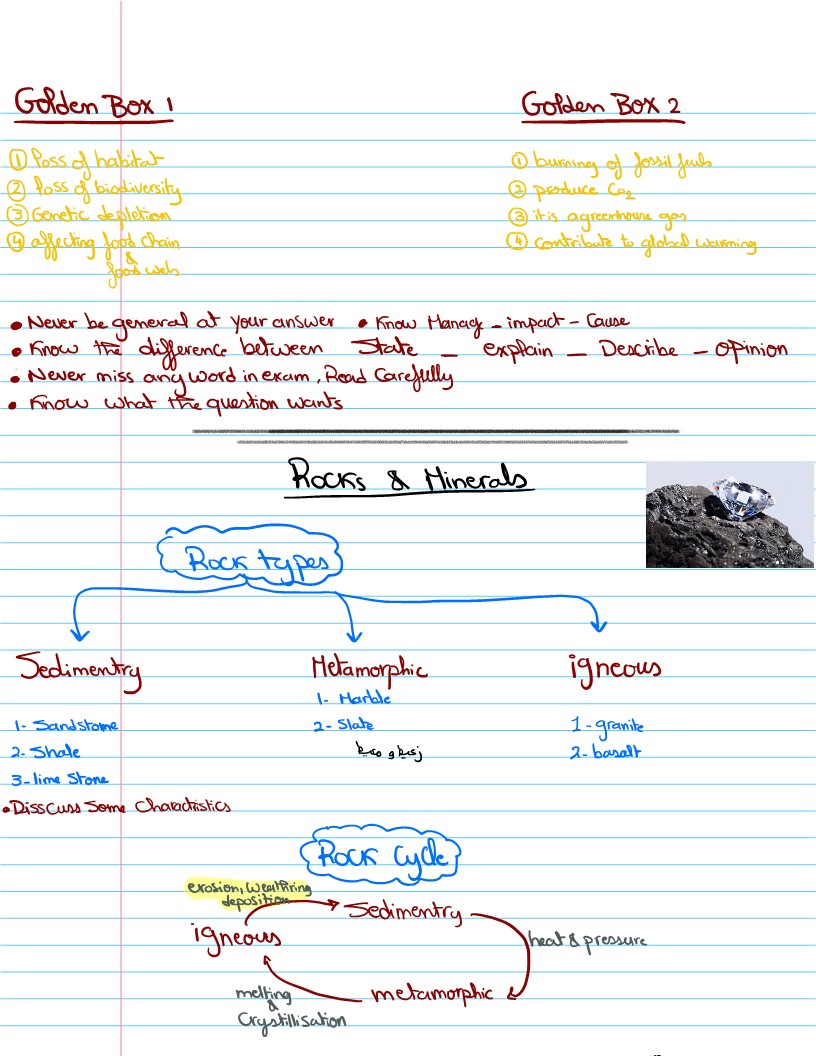 Golden Box 1
① loss of habitat
② loss of biodiversity
③ Genetic depletion
④ affecting food chain
&
food web
Golden Box 2
① burning of fossil fuels
② produce Co2
③ it is a greenhouse gas
④ contribute to global warming
• Never be general at your answer • Know Manag - impact - Cause
• Know the difference between State - explain - Describe - opinion
• Never miss any word in exam, Read Carefully
• Know what the question wants
Rocks & Minerals
Rock types
Sedimentry
1- Sandstome
2- Shale
3- lime Stone
• Disscuss Some Charactristics
Metamorphic
1- Marble
2- Slate
igneous
1- granite
2- basalt
Rock Cycle
erosion, weathring
deposition
Sedimentry
igneous
heat & pressure
metamorphic
melting
&
Crystillisation